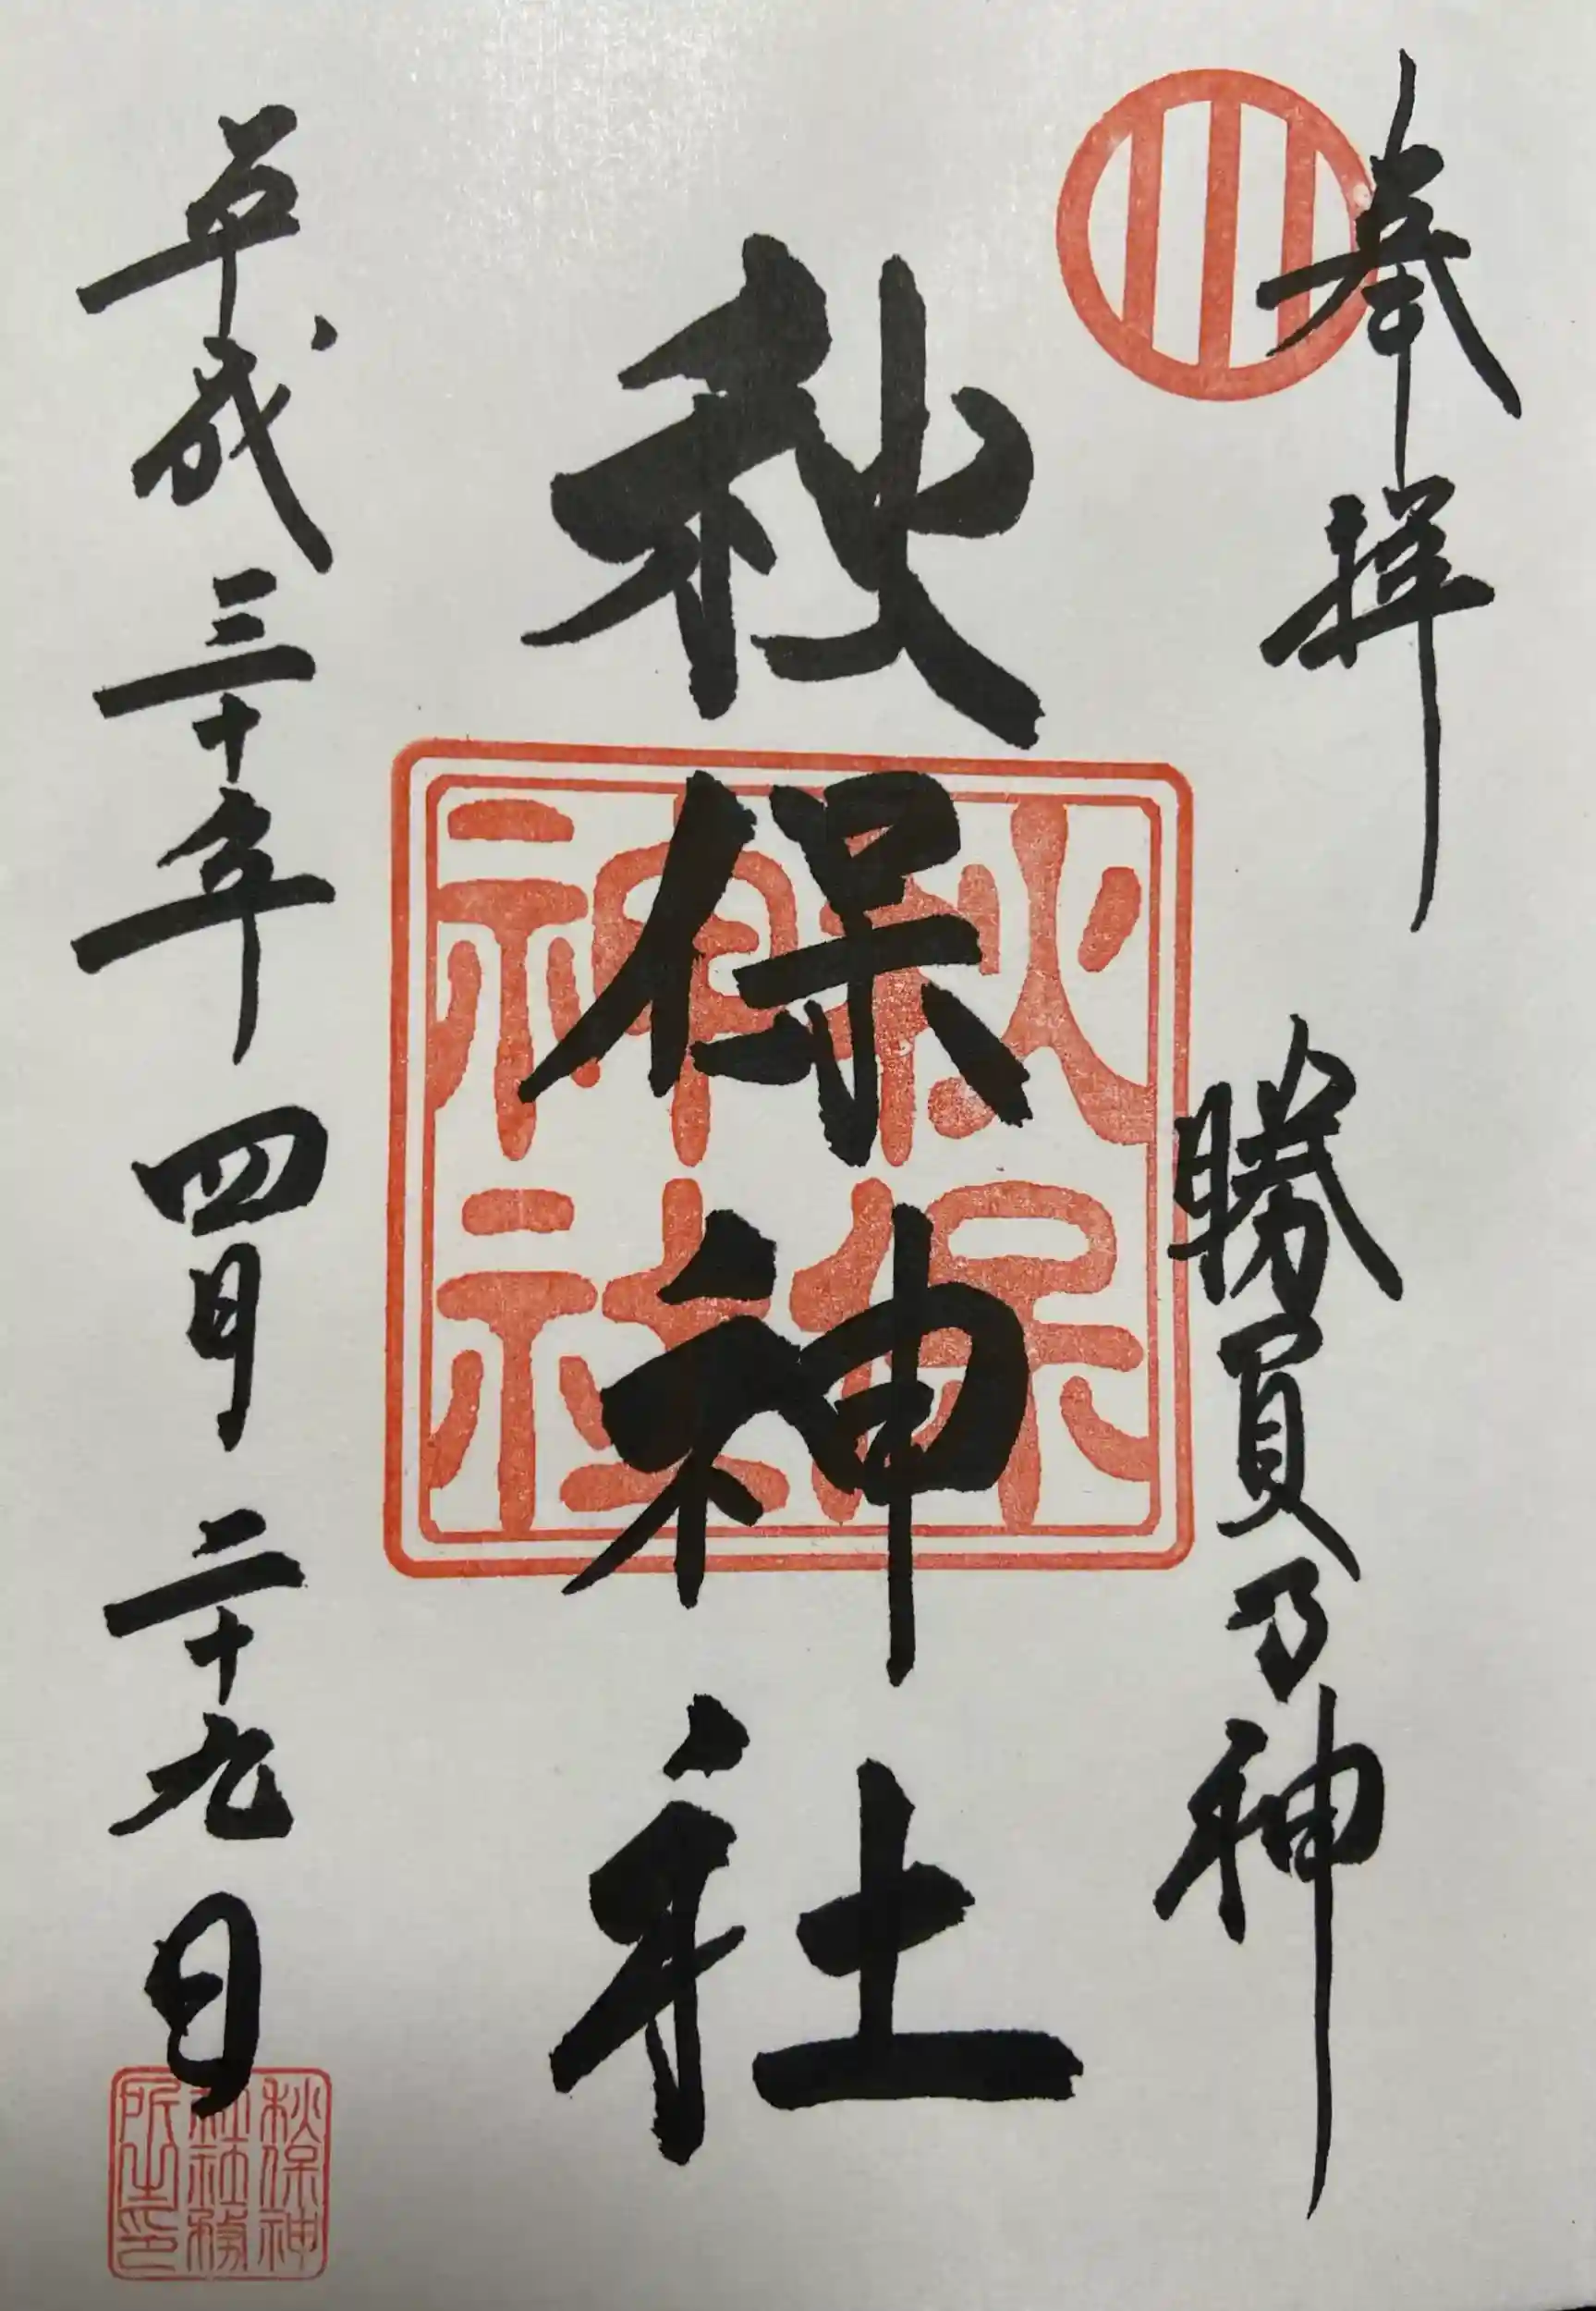 奉拝
勝負乃神
秋保神社
平成三十年四月二十九日
秋保
神社
秋保神
社社務
所之印